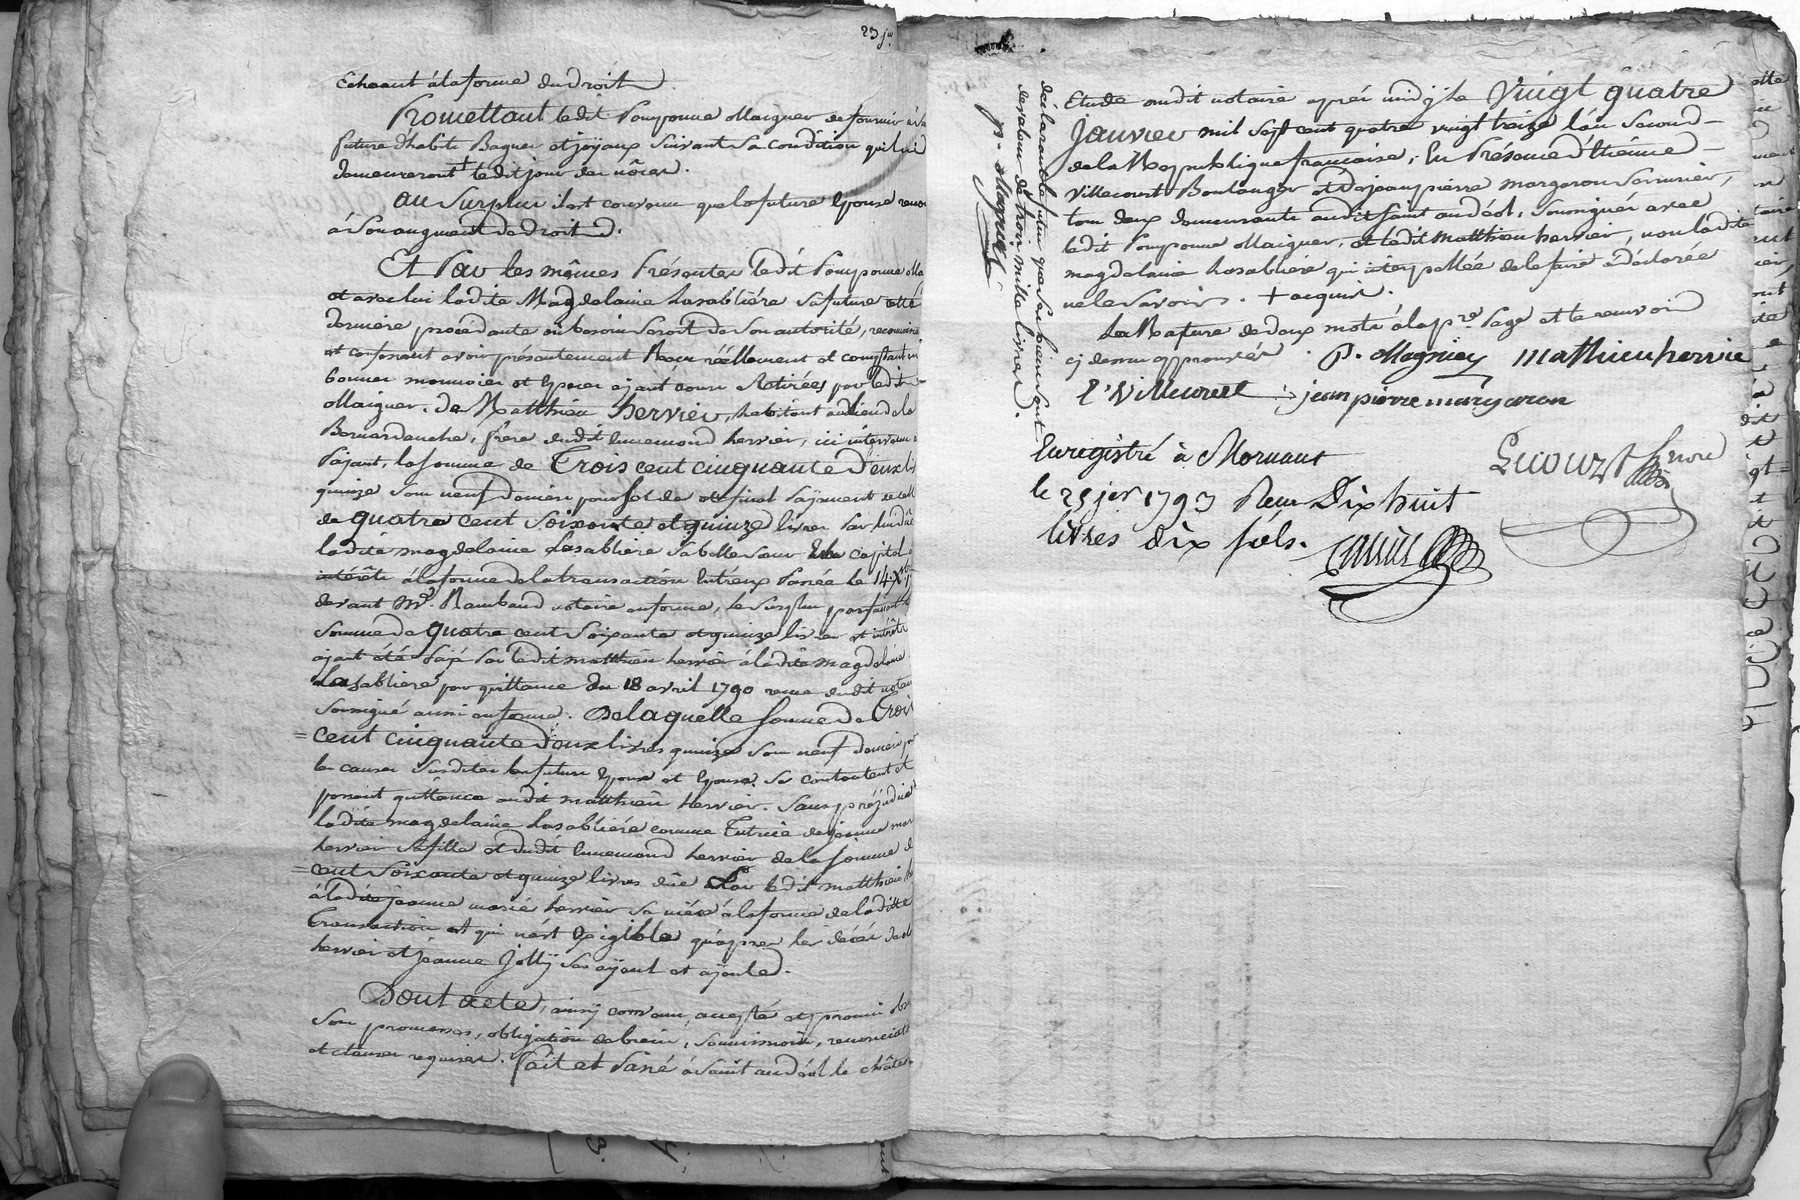 23 j
Echeant à la forme du droit.
Promettant ledit Pomponne Maignier de fournir à sa
future d'habits Bagues et joyaux suivant sa condition qui lui
demeureront + ledit jour des nôces.
Au surplus il est convenu que la future Epouse renon
à son augment de droit.
Et Par les mêmes Présentes ledit Pomponne Ma
et avec lui ladite Magdelaine Lasabliére sa future cette
derniére procédante où besoin seroit de son autorité, reconnoi
et confessent avoir présentement Reçu réellement et comptant en
bonnes monnoies et Especes ajant cours Retirées par ledit
Maignier. de Matthieu hervier, habitant au lieu de la
Bernardauche, frere dudit Ennemond hervier, ici intervenu
Pajant, la somme de Trois cent cinquante d'eux liv
quinze sous neuf deniers pour solde et final Pajement de cell
de quatre cent soixante et quinze livres Par lui dûe
ladite magdelaine Lasabliere sa belle sœur En capital
intérêts à la forme de la transaction Entr'eux Passée le 14 Xbre
devant Me. Rambaud notaire en forme, le surplus parfaisant
somme de quatre cent soixante et quinze livres et intérêts
ajant été Pajé Par ledit matthieu hervier à ladite magdelaine
Lasabliere par quittance du 18 avril 1790 reçue dudit notair
soussigné aussi en forme. De laquelle somme de Trois
= cent cinquante deux livres quinze sous neuf deniers pour
les causes susdites les futurs Epoux et Epouse se contentent et
passent quittance audit matthieu hervier. Sans préjudice
ladite magdelaine Lasabliére comme Tutrice de jeanne mar
hervier sa fille et dudit Ennemond hervier de la somme de
= cent soixante et quinze livres dûe Par ledit matthieu h
à ladite jeanne marie hervier sa niéce à la forme de ladite
Transaction et qui n'est Exigible qu'apres les décés de
hervier et jeanne Jolly ses ajeul et ajeule.
Dont acte, ainsy convenu, accepté et promis obs
sous promesses, obligation de biens, soumissions, renonciat
et clauses requises. Fait et Passé à Saint andéol le château
déclarant le futur que ses biens sont
de valeur de trois mille livres.
p. Magnier
Etude dudit notaire aprés midy le Vingt quatre
Janvier mil sept cent quatre vingt treize l'an second
de la République francaise, En Présence d'Etienne
Villecourt Boulanger et de jean pierre margaron serrurier,
tous deux demeurants audit Saint andéol, soussignés avec
ledit Pomponne Maignier, et ledit matthieu hervier, non ladite
magdelaine Lasabliére qui interpellée de le faire a déclaré
ne le savoir. + acquis.
La Rature de deux mots à la pre. Page et le renvoi
cj dessus approuvés. P. Magnier mathieu hervie
E. Villecourt jean pierre margaron
Enregistré à Mornant
le 25 jer 1793 Reçu Dix huit
livres dix sols.